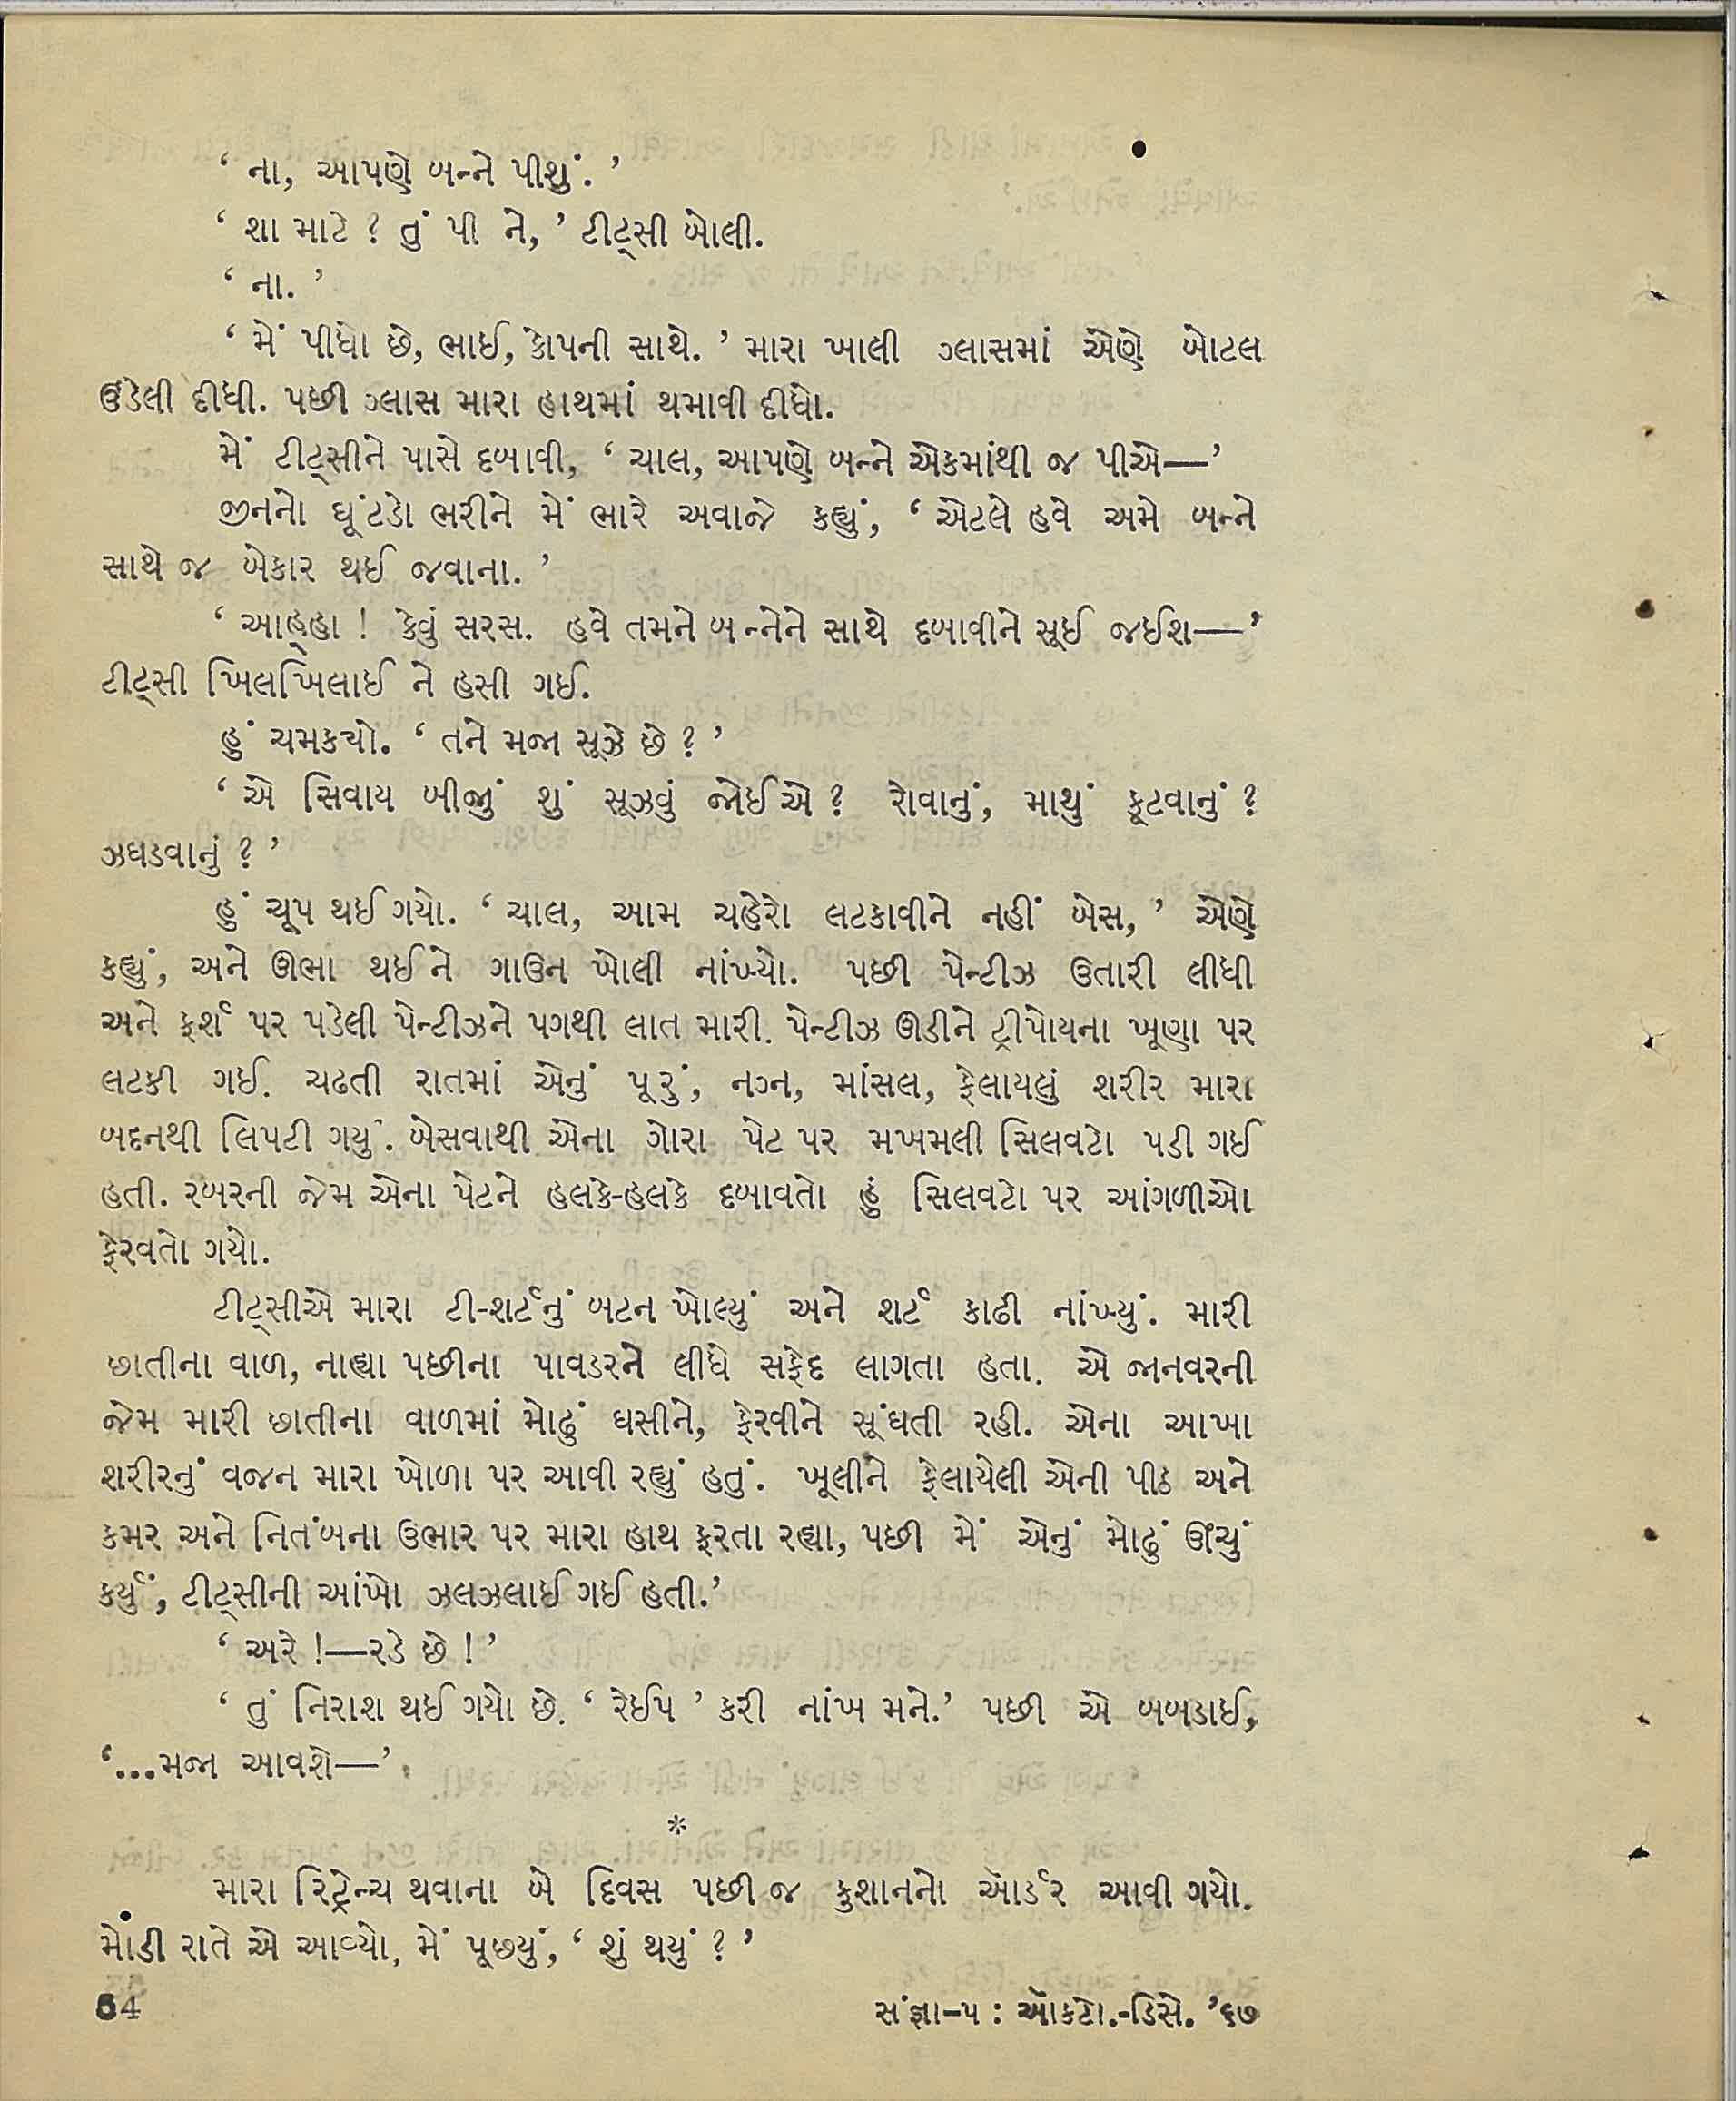 ‘ ના, આપણે બન્ને પીશું. ’
‘ શા માટે ? તું પી ને, ’ ટીટ્સી બોલી.
‘ ના. ’
‘ મેં પીધો છે, ભાઈ, કોપની સાથે. ’ મારા ખાલી ગ્લાસમાં એણે બોટલ
ઉંડેલી દીધી. પછી ગ્લાસ મારા હાથમાં થમાવી દીધો.
મેં ટીટ્સીને પાસે દબાવી, ‘ ચાલ, આપણે બન્ને એકમાંથી જ પીએ—’
જીનનો ઘૂંટડો ભરીને મેં ભારે અવાજે કહ્યું, ‘ એટલે હવે અમે બન્ને
સાથે જ બેકાર થઈ જવાના. ’
‘ આહ્‌હા ! કેવું સરસ. હવે તમને બન્નેને સાથે દબાવીને સૂઈ જઈશ—’
ટીટ્સી ખિલખિલાઈ ને હસી ગઈ.
હું ચમક્યો. ‘ તને મજા સૂઝે છે ? ’
‘ એ સિવાય બીજું શું સૂઝવું જોઈએ ? રોવાનું, માથું કૂટવાનું ?
ઝઘડવાનું ? ’
હું ચૂપ થઈ ગયો. ‘ ચાલ, આમ ચહેરો લટકાવીને નહીં બેસ, ’ એણે
કહ્યું, અને ઊભા થઈને ગાઉન ખોલી નાંખ્યો. પછી પેન્ટીઝ ઉતારી લીધી
અને ફર્શ પર પડેલી પેન્ટીઝને પગથી લાત મારી. પેન્ટીઝ ઊડીને ટ્રીપોયના ખૂણા પર
લટકી ગઈ. ચઢતી રાતમાં એનું પૂરું, નગ્ન, માંસલ, ફેલાયલું શરીર મારા
બદનથી લિપટી ગયું. બેસવાથી એના ગોરા પેટ પર મખમલી સિલવટો પડી ગઈ
હતી. રબરની જેમ એના પેટને હલકે-હલકે દબાવતો હું સિલવટો પર આંગળીઓ
ફેરવતો ગયો.
ટીટ્સીએ મારા ટી-શર્ટનું બટન ખોલ્યું અને શર્ટ કાઢી નાંખ્યું. મારી
છાતીના વાળ, નાહ્યા પછીના પાવડરને લીધે સફેદ લાગતા હતા. એ જાનવરની
જેમ મારી છાતીના વાળમાં મોઢું ઘસીને, ફેરવીને સૂંઘતી રહી. એના આખા
શરીરનું વજન મારા ખોળા પર આવી રહ્યું હતું. ખૂલીને ફેલાયેલી એની પીઠ અને
કમર અને નિતંબના ઉભાર પર મારા હાથ ફરતા રહ્યા, પછી મેં એનું મોઢું ઊંચું
કર્યું, ટીટ્સીની આંખો ઝલઝલાઈ ગઈ હતી.’
‘ અરે !—રડે છે ! ’
‘ તું નિરાશ થઈ ગયો છે. ‘ રેઈપ ’ કરી નાંખ મને.’ પછી એ બબડાઈ,
‘...મજા આવશે—’
*
મારા રિટ્રેન્ચ થવાના બે દિવસ પછી જ કુશાનનો ઑર્ડર આવી ગયો.
મોડી રાતે એ આવ્યો, મેં પૂછ્યું, ‘ શું થયું ? ’
64 સંજ્ઞા-૫ : ઑક્ટો.-ડિસે. ’૬૭